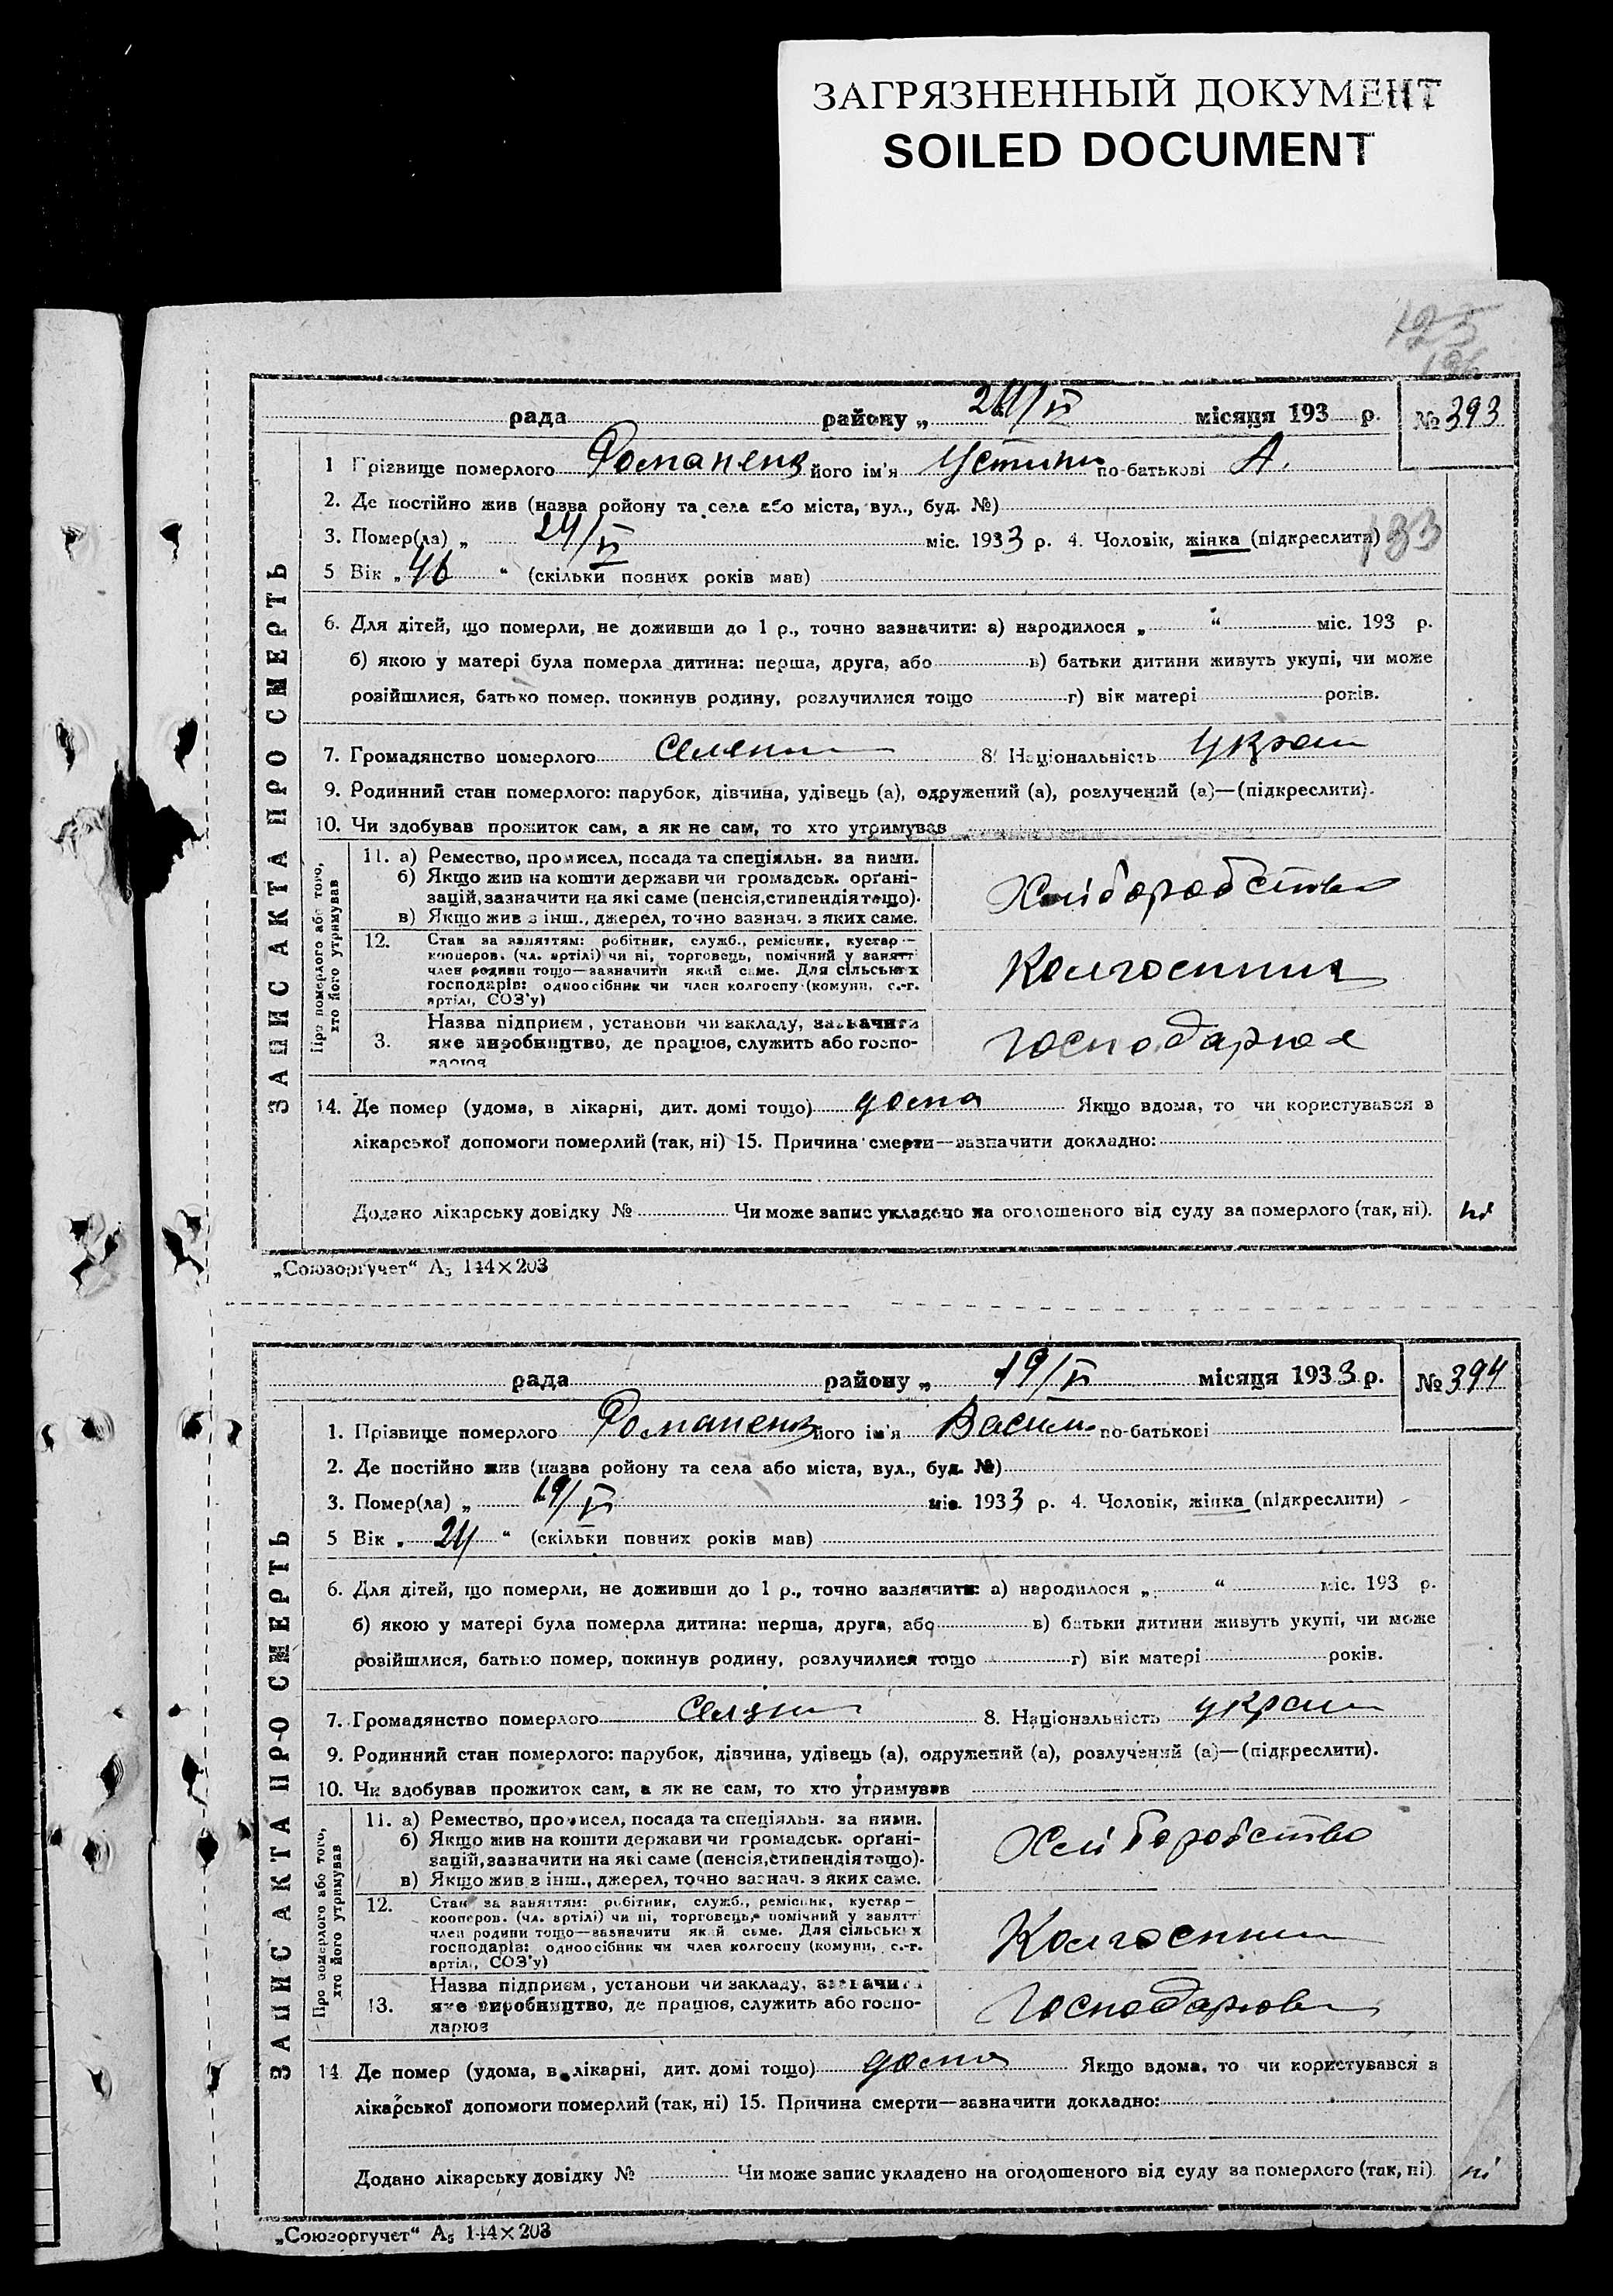 ЗАГРЯЗНЕННЫЙ ДОКУМЕНТ
SOILED DOCUMENT
рада району „ 24/VI місяця 193 р. № 393
1 Прізвище померлого Романенк його ім'я Устини по-батькові А.
2. Де постійно жив (назва ройону та села або міста, вул., буд. №)
3. Помер(ла) „ 24/VI міс. 1933 р. 4. Чоловік, жінка (підкреслити)
5 Вік „ 46 “ (скільки повних років мав)
6. Для дітей, що померли, не доживши до 1 р., точно зазначити: а) народилося „ “ міс. 193 р.
б) якою у матері була померла дитина: перша, друга, або в) батьки дитини живуть укупі, чи може
розійшлися, батько помер. покинув родину, розлучилися тощо г) вік матері років.
7. Громадянство померлого 8. Національність украи
9. Родинний стан померлого: парубок, дівчина, удівець (а), одружений (а), розлучений (а)—(підкреслити).
10. Чи здобував прожиток сам, а як не сам, то хто утримував
ЗАПИС АКТА ПРО СМЕРТЬ
Про померлого або того, хто його утримував
11. а) Ремество, промисел, посада та спеціяльн. за ними.
б) Якщо жив на кошти держави чи громадськ. орґані-
зацій, зазначити на які саме (пенсія, стипендія тощо).
в) Якщо жив з інш., джерел, точно зазнач. з яких саме.
Хліборобство
12. Стан за заняттям: робітник, служб., ремісник, кустар—
кооперов. (чл. артілі) чи ні, торговець, помічний у занятт
член родини тощо—зазначити який саме. Для сільських
господарів: одноосібник чи член колгоспу (комуни, с.-г.
артілі, СОЗ'у)
Колгоспник
3. Назва підприєм, установи чи закладу, зазначити
яке виробництво, де працюв, служить або госпо-
дарює
14. Де помер (удома, в лікарні, дит. домі тощо) дома Якщо вдома, то чи користувався в
лікарської допомоги померлий (так, ні) 15. Причина смерти—зазначити докладно:
Додано лікарську довідку № Чи може запис укладено на оголошеного від суду за померлого (так, ні). ні
„Союзоргучет“ А5 144×203
рада району „ 19/VI місяця 1933 р. № 394
1. Прізвище померлого Романенк його ім'я Васил по-батькові
2. Де постійно жив (назва ройону та села або міста, вул., буд. №)
3. Помер(ла) „ 19/VI міс. 1933 р. 4. Чоловік, жінка (підкреслити)
5 Вік „ 24 “ (скільки повних років мав)
6. Для дітей, що померли, не доживши до 1 р., точно зазначити: а) народилося „ “ міс. 193 р.
б) якою у матері була померла дитина: перша, друга, або в) батьки дитини живуть укупі, чи може
розійшлися, батько помер, покинув родину, розлучилися тощо г) вік матері років.
7. Громадянство померлого 8. Національність украи
9. Родинний стан померлого: парубок, дівчина, удівець (а), одружений (а), розлучений (а)—(підкреслити).
10. Чи здобував прожиток сам, а як не сам, то хто утримував
ЗАПИС АКТА ПРО СМЕРТЬ
Про померлого або того, хто його утримував
11. а) Ремество, промисел, посада та спеціяльн. за ними.
б) Якщо жив на кошти держави чи громадськ. орґані-
зацій, зазначити на які саме (пенсія, стипендія тощо).
в) Якщо жив з інш., джерел, точно зазнач. з яких саме.
Хліборобство
12. Стан за заняттям: робітник, служб., ремісник, кустар—
кооперов. (чл. артілі) чи ні, торговець, помічний у занятт
член родини тощо—зазначити який саме. Для сільських
господарів: одноосібник чи член колгоспу (комуни, с.-г.
артілі, СОЗ'у)
Колгоспник
13. Назва підприєм, установи чи закладу, зазначити
яке виробництво, де працюв, служить або госпо-
дарює
14 Де помер (удома, в лікарні, дит. домі тощо) дома Якщо вдома, то чи користувався в
лікарської допомоги померлий (так, ні) 15. Причина смерти—зазначити докладно:
Додано лікарську довідку № Чи може запис укладено на оголошеного від суду за померлого (так, ні). ні
„Союзоргучет“ А5 144×203